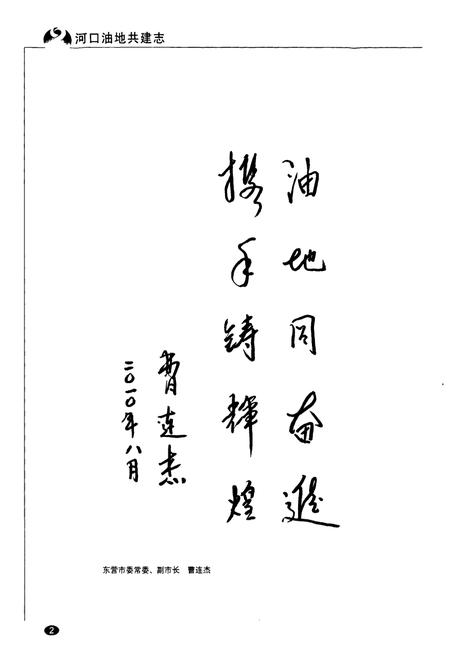 河口油地共建志
油地同奋進
携手铸輝煌
曹连杰
二〇一〇年八月
东营市委常委、副市长 曹连杰
2